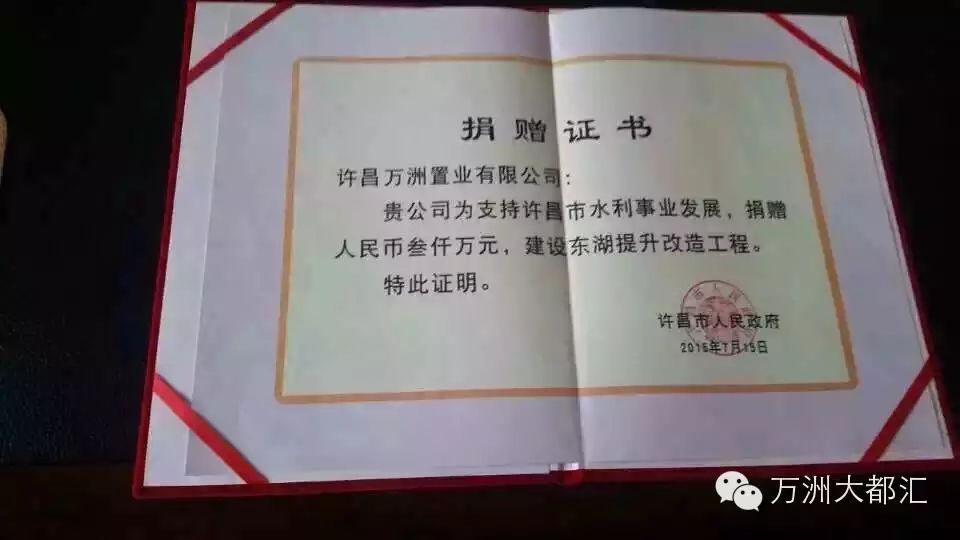 捐赠证书
许昌万洲置业有限公司：
贵公司为支持许昌市水利事业发展，捐赠
人民币叁仟万元，建设东湖提升改造工程。
特此证明。
许昌市人民政府
2015年7月15日
万洲大都汇